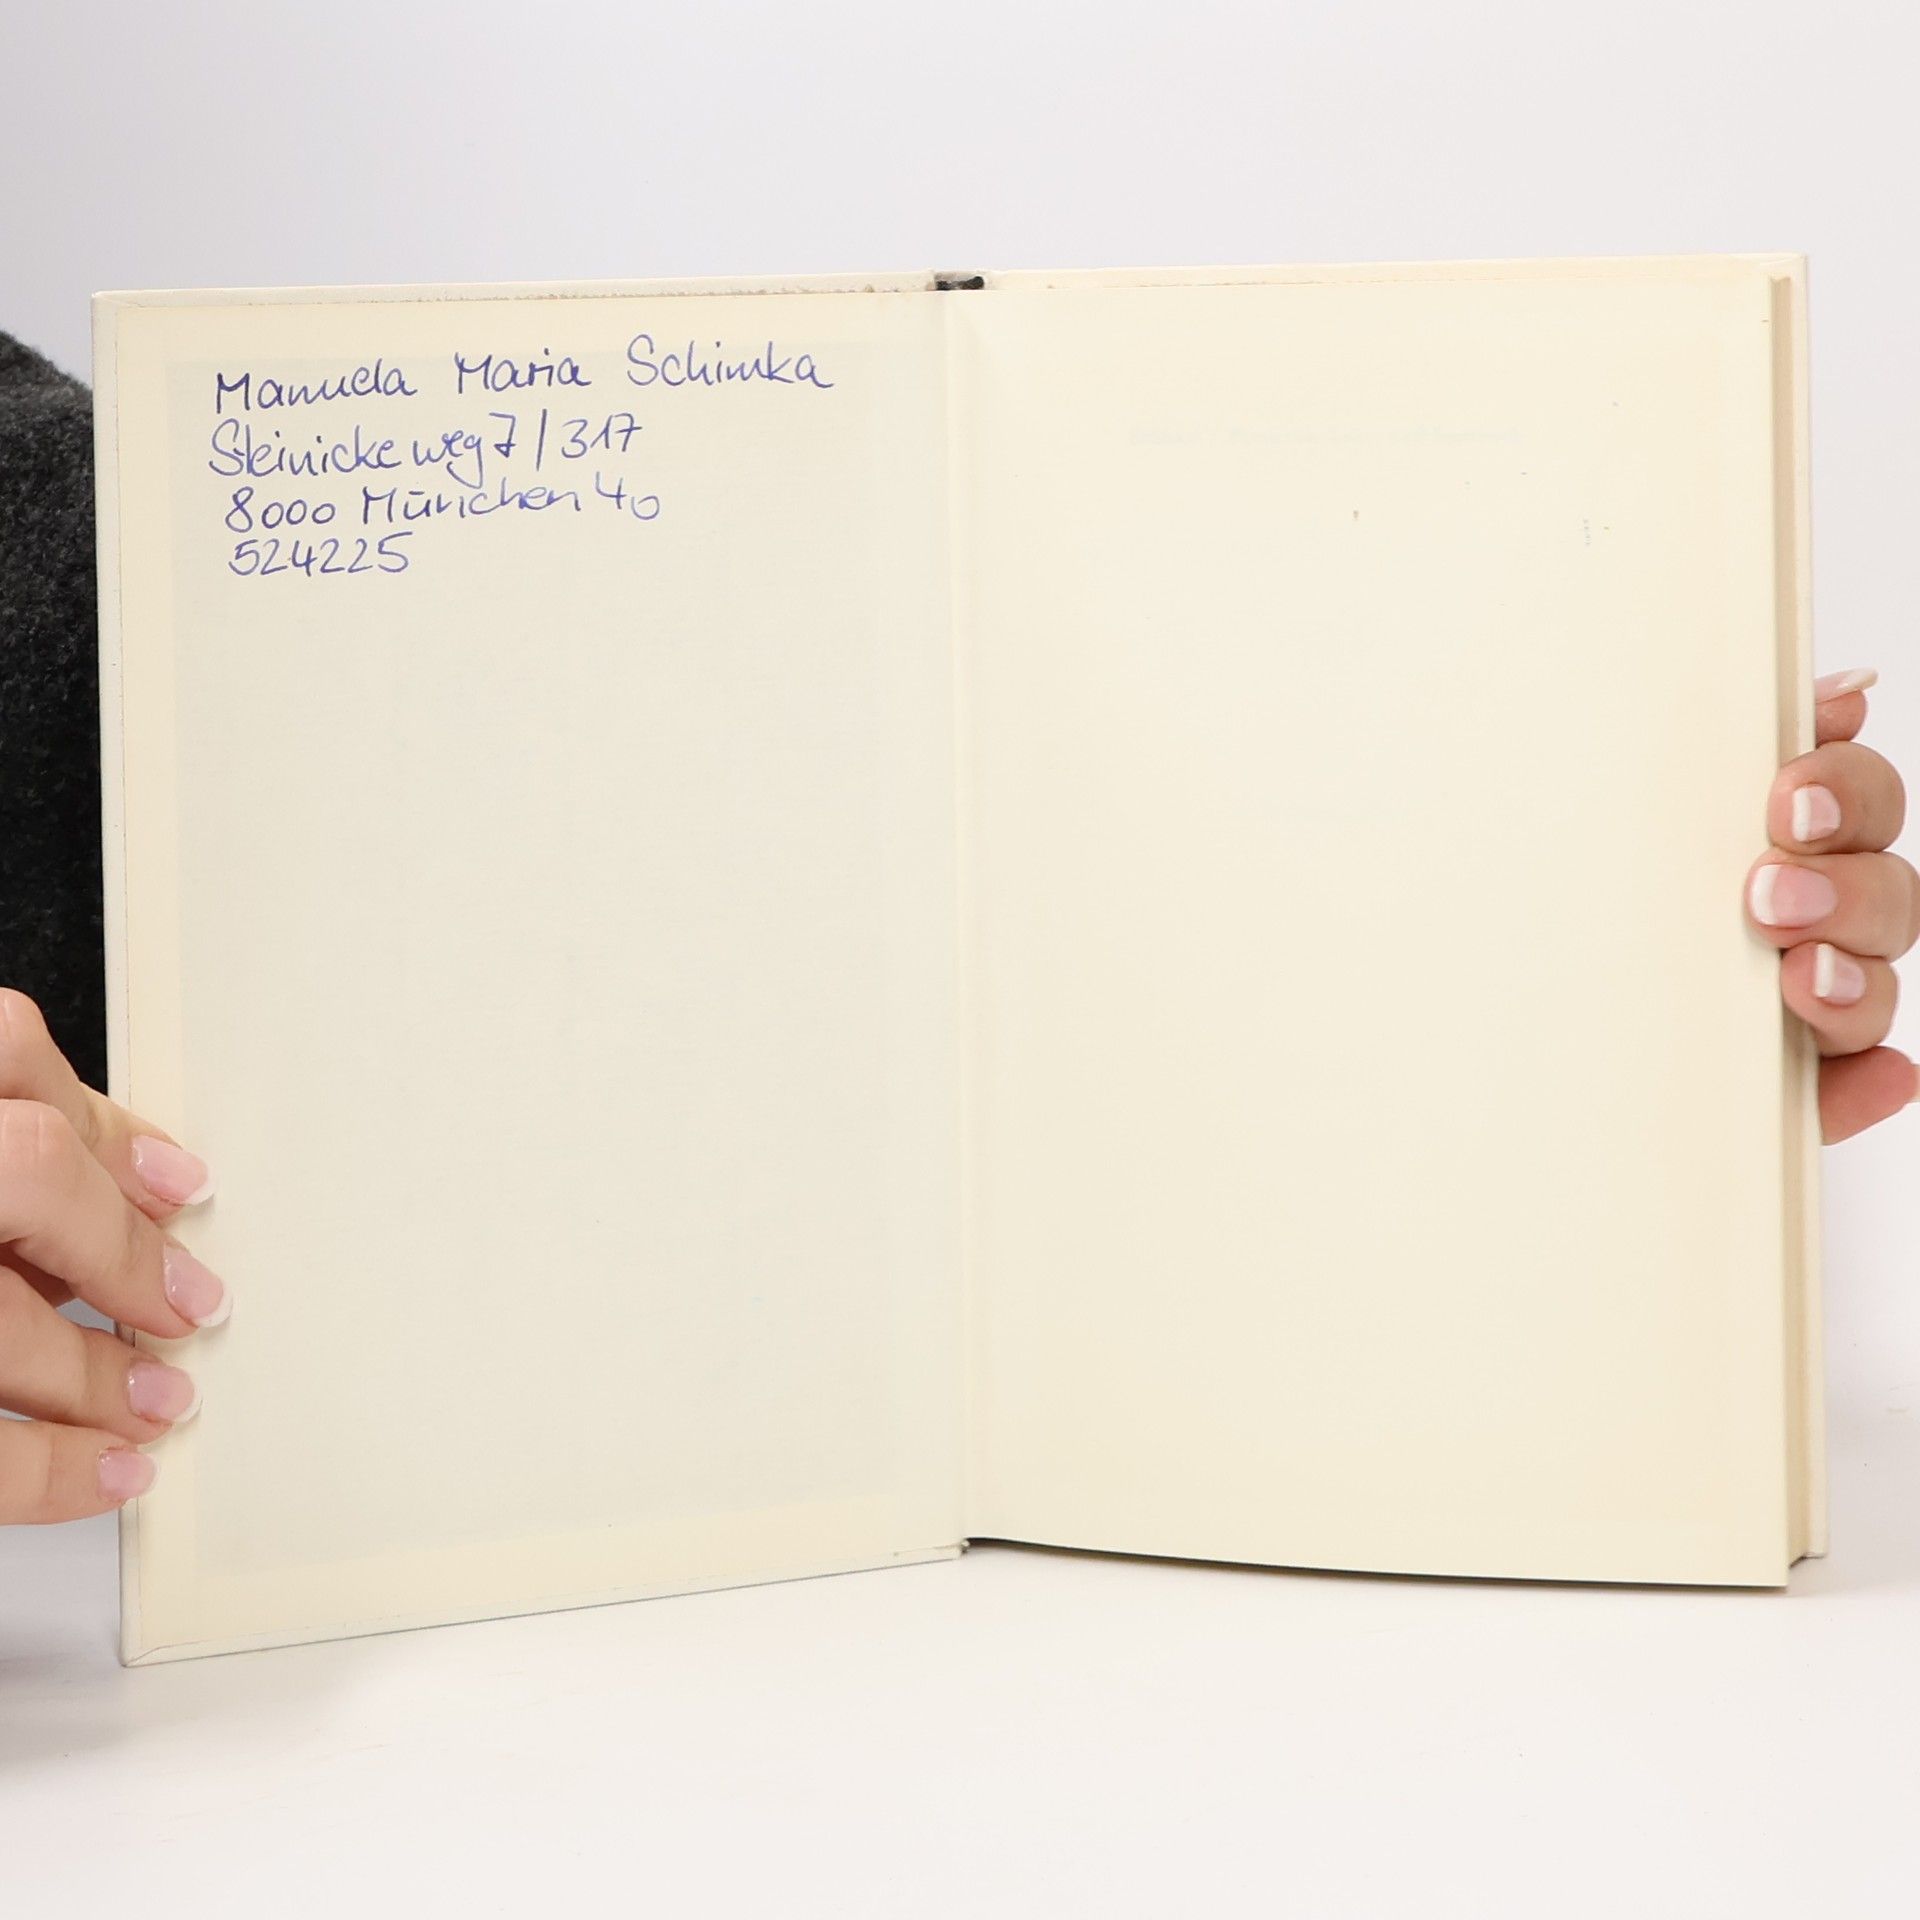 Manuela Maria Schimka
Steinickeweg 7 / 317
8000 München 40
524225